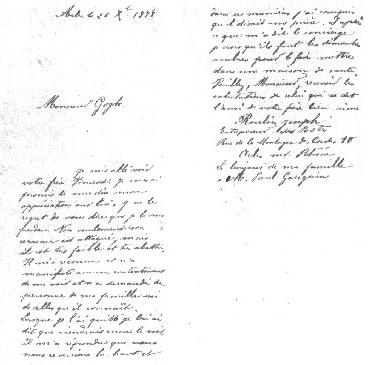 Arles le 26 Xbre 1888
Monsieur Gogh.
je suis allé voir
votre frère Vincent. je vous ai
promis de vous dire mon
appréciation sur lui. j'ai le
regret de vous dire que je le crois
perdu. Non seulement son
cerveau est attaqué, mais
il est très faible et très abattu
Il m'a reconnu et n'a
manifesté aucun contentement
de me voir et n'a demandé de
personne de ma famille ni
de celles qu'il connait.
Lorsque je l'ai quitté je lui ai
dit que viendrais encore le voir
il m'a répondu que nous
nous reverrions là haut et
dans ses manières j'ai compris
qu'il disait une prière. D'après
ce que m'a dit le concierge
je crois qu'ils font les démarches
voulues pour le faire mettre
dans une maison de santé
Veuillez, Monsieur, recevoir les
salutations de celui qui se dit
l'ami de votre frère bien aimé
Roulin Joseph
Entreposeur des Postes
Rue de la Montagne des Cordes 10
Arles sur Rhône
Le bonjour de ma famille
à M. Paul Gauguin